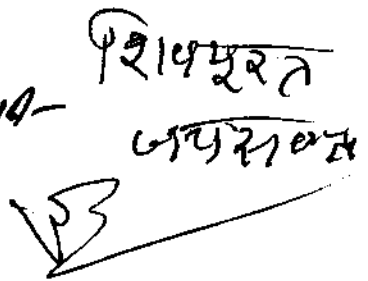 शिवमूरत
जायसवाल